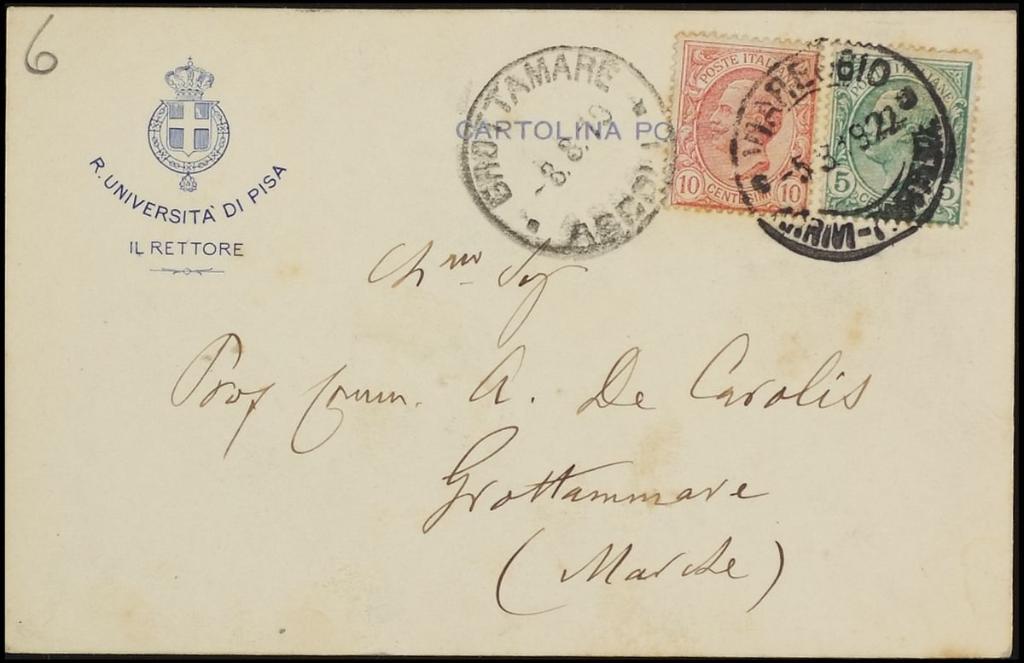 6
R. UNIVERSITÀ DI PISA
IL RETTORE
CARTOLINA PO
GROTTAMARE
POSTE ITALI
10 CENTESIMI 10
VIAREGGIO
5.8.22
5 5
Ch.mo Sig
Prof Comm. A. De Carolis
Grottammare
(Marche)